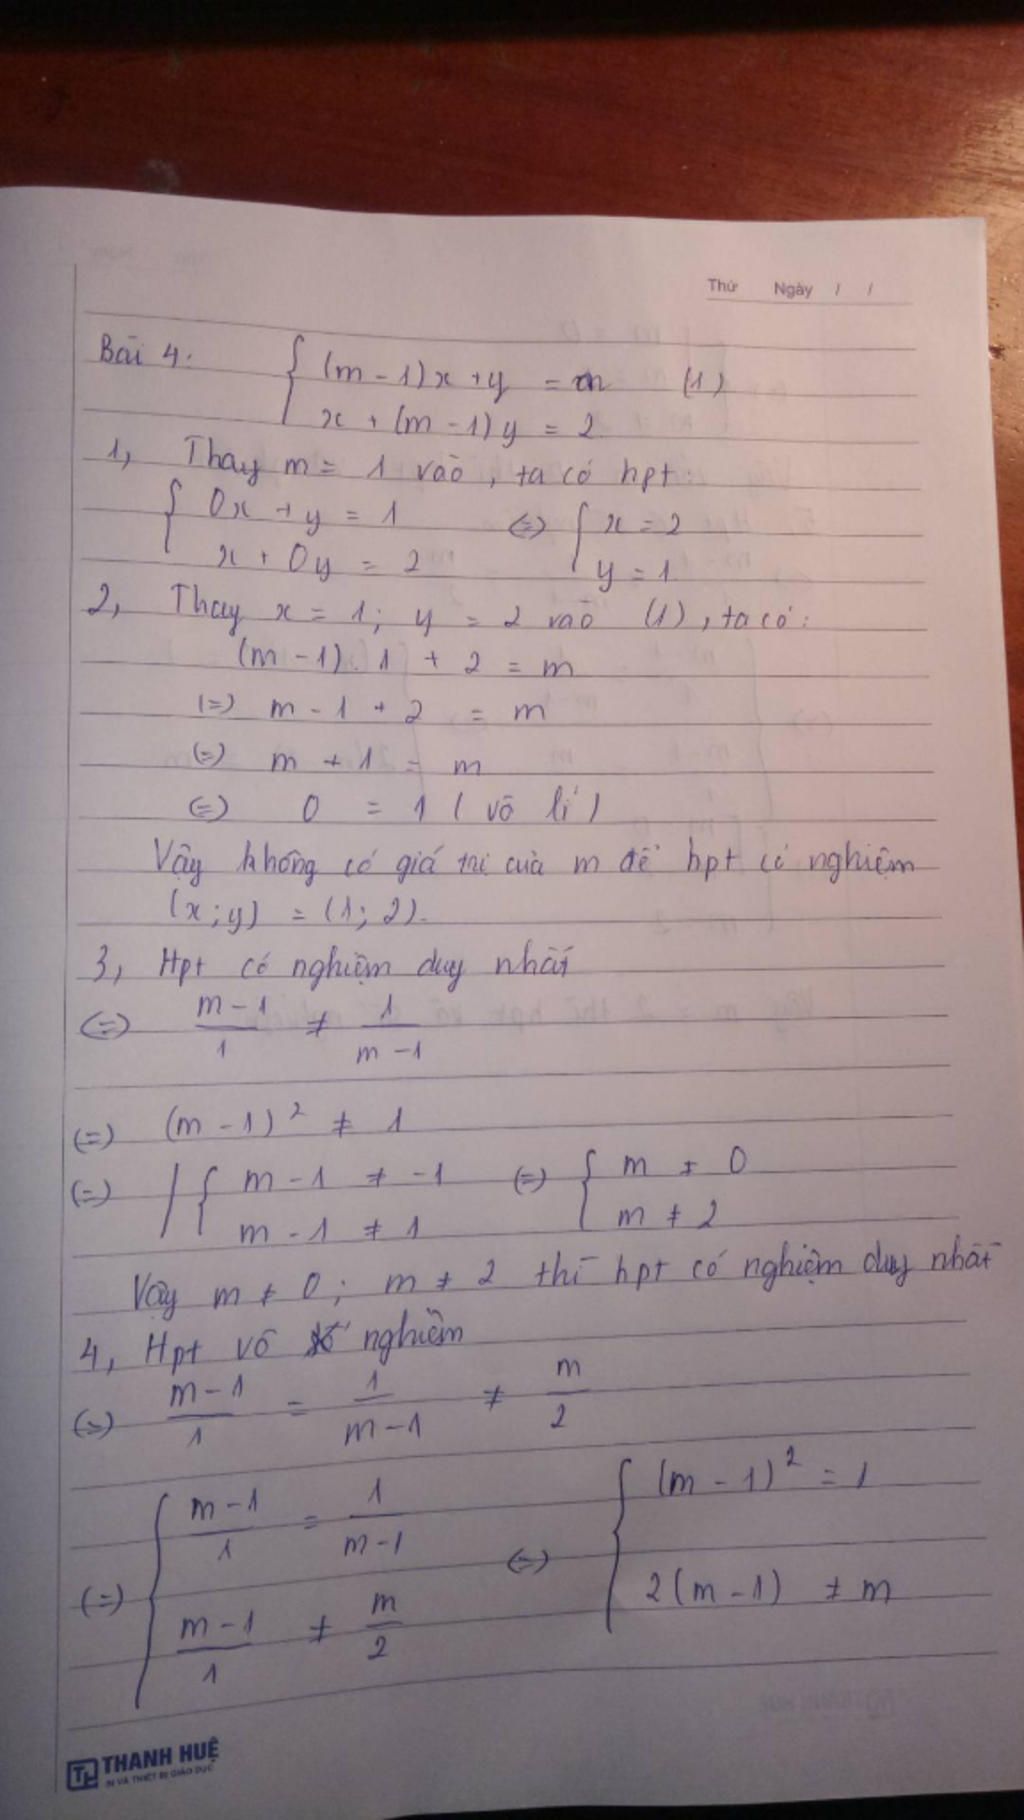 Thứ Ngày / /
Bài 4: { (m - 1)x + y = m (1)
x + (m - 1)y = 2
1, Thay m = 1 vào, ta có hpt:
{ 0x + y = 1 (=) { x = 2
x + 0y = 2 y = 1
2, Thay x = 1; y = 2 vào (1), ta có:
(m - 1). 1 + 2 = m
(=) m - 1 + 2 = m
(=) m + 1 = m
(=) 0 = 1 (vô lí)
Vậy không có giá trị của m để hpt có nghiệm
(x; y) = (1; 2).
3, Hpt có nghiệm duy nhất
(=) (m - 1)/1 ≠ 1/(m - 1)
(=) (m - 1)² ≠ 1
(=) { m - 1 ≠ -1 (=) { m ≠ 0
m - 1 ≠ 1 m ≠ 2
Vậy m ≠ 0; m ≠ 2 thì hpt có nghiệm duy nhất
4, Hpt vô nghiệm
(=) (m - 1)/1 = 1/(m - 1) ≠ m/2
(=) { (m - 1)/1 = 1/(m - 1) (=) { (m - 1)² = 1
(m - 1)/1 ≠ m/2 2(m - 1) ≠ m
THANH HUỆ
IN VÀ THIẾT BỊ GIÁO DỤC